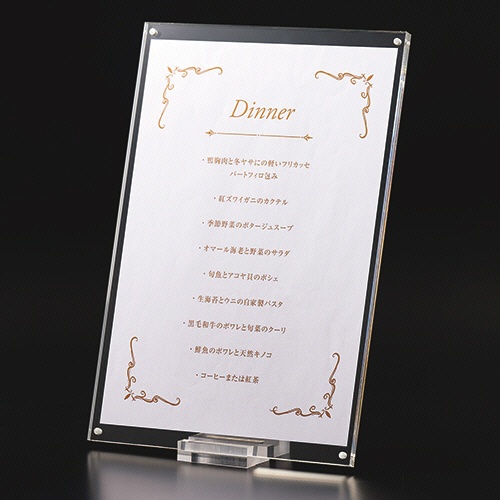 Dinner
・鴨胸肉と冬ヤサにの軽いフリカッセ
パートフィロ包み
・紅ズワイガニのカクテル
・季節野菜のポタージュスープ
・オマール海老と野菜のサラダ
・旬魚とアコヤ貝のポシェ
・生海苔とウニの自家製パスタ
・黒毛和牛のポワレと旬菜のクーリ
・鮮魚のポワレと天然キノコ
・コーヒーまたは紅茶